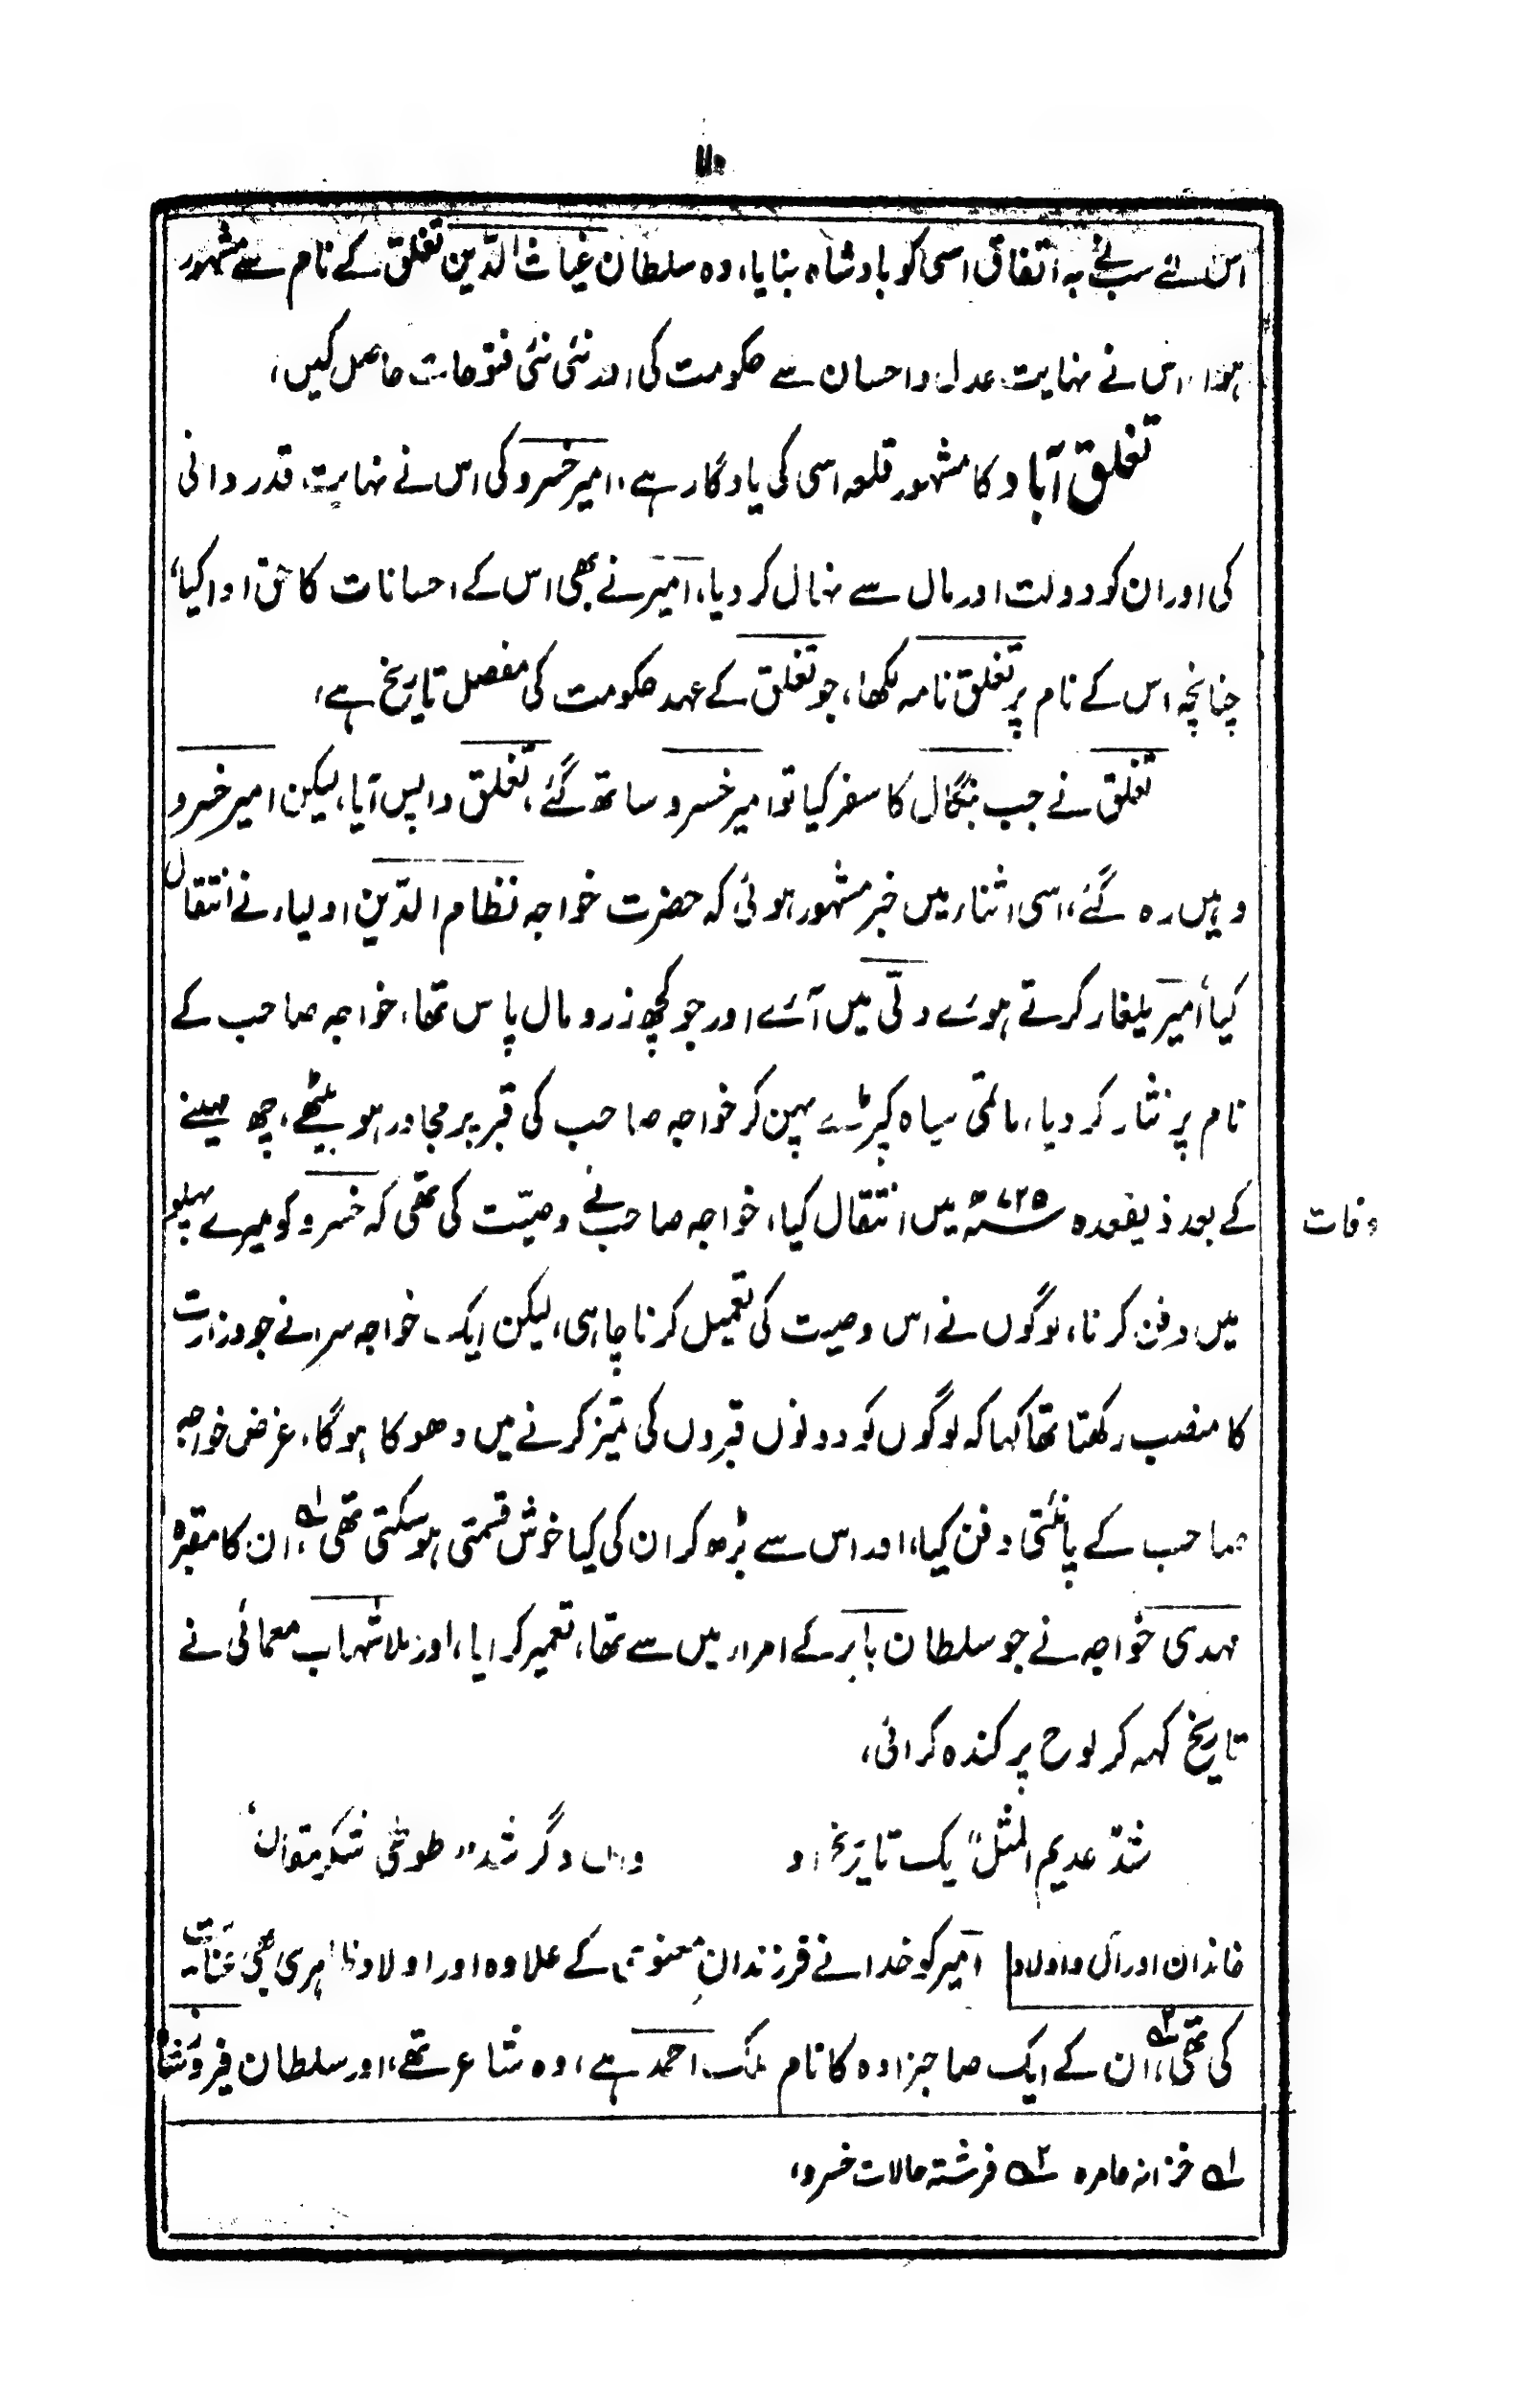 ۱۱۰
اس لئے سب نے بہ اتفاق اسی کو بادشاہ بنایا، وہ سلطان غیاث الدّین تغلق کے نام سے مشہور
ہوا، اس نے نہایت عدل و احسان سے حکومت کی اور نئی نئی فتوحات حاصل کیں،
تغلق آباد کا مشہور قلعہ اسی کی یادگار ہے، امیر خسرو کی اس نے نہایت قدردانی
کی اور ان کو دولت اور مال سے نہال کر دیا، امیر نے بھی اس کے احسانات کا حق ادا کیا،
چنانچہ اس کے نام پر تغلق نامہ لکھا، جو تغلق کے عہد حکومت کی مفصل تاریخ ہے،
تغلق نے جب بنگال کا سفر کیا تو امیر خسرو ساتھ گئے، تغلق واپس آیا، لیکن امیر خسرو
وہیں رہ گئے، اسی اثناء میں خبر مشہور ہوئی کہ حضرت خواجہ نظام الدّین اولیاء نے انتقال
کیا امیر یلغار کرتے ہوئے دلّی میں آئے اور جو کچھ زر و مال پاس تھا، خواجہ صاحب کے
نام پر نثار کر دیا، ماتمی سیاہ کپڑے پہن کر خواجہ صاحب کی قبر پر مجاور ہو بیٹھے، چھ مہینے
کے بعد ذیقعدہ ۷۲۵ھ میں انتقال کیا، خواجہ صاحب نے وصیّت کی تھی کہ خسرو کو میرے پہلو
وفات
میں دفن کرنا، لوگوں نے اس وصیت کی تعمیل کرنا چاہی، لیکن ایک خواجہ سرا نے جو وزارت
کا منصب رکھتا تھا کہا کہ لوگوں کو دونوں قبروں کی تمیز کرنے میں دھوکا ہوگا، غرض خواجہ
صاحب کے پائنتی دفن کیا، اور اس سے بڑھ کر ان کی کیا خوش قسمتی ہو سکتی تھی؂۱، ان کا مقبرہ
مہدی خواجہ نے جو سلطان بابر کے امراء میں سے تھا، تعمیر کرایا، اور ملا شہاب معمائی نے
تاریخ کہہ کر لوح پر کندہ کرائی،
شد "عدیم المثل" یک تاریخ او واں دگر شد "طوطی شکر مقال"
خاندان اور آل و اولاد امیر کو خدا نے فرزندانِ معنوی کے علاوہ اور اولاد ظاہری بھی عنایت
کی تھی؂۲، ان کے ایک صاحبزادہ کا نام ملک احمد ہے، وہ شاعر تھے، اور سلطان فیروز شاہ
؂۱ خزانہ عامرہ ؂۲ فرشتہ حالات خسرو،